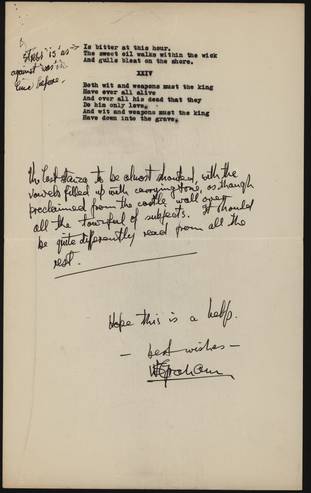 Stress 'is' as →
against 'was' in
line before.
Is bitter at this hour.
The sweet oil walks within the wick
And gulls bleat on the shore.
XXIV
Both wit and weapons must the king
Have over all alive
And over all his dead that they
Do him only love.
And wit and weapons must the king
Have down into the grave.
The last stanza to be almost shouted, with the
vowels filled up with carrying tone, as though
proclaimed from the castle wall over
all the townful of subjects. It should
be quite differently read from all the
rest.
Hope this is a help.
— best wishes —
WSGraham